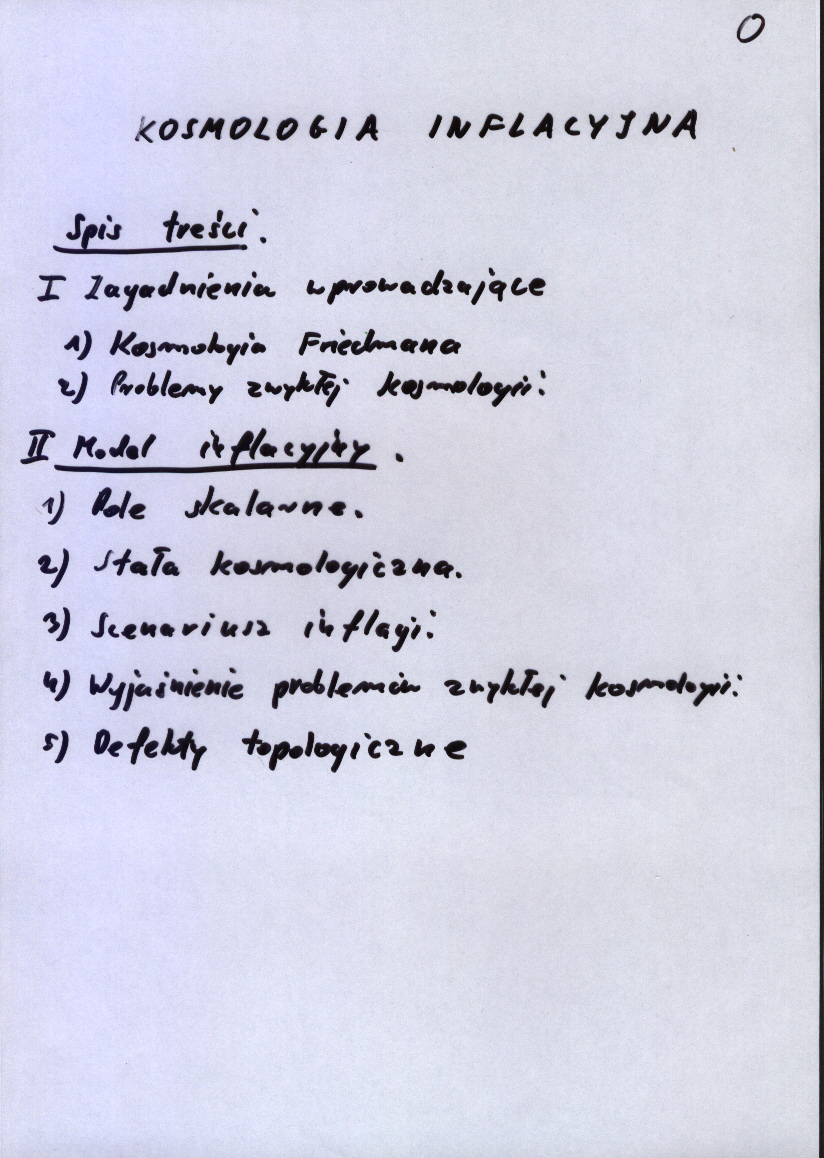 0
KOSMOLOGIA INFLACYJNA
Spis treści.
I Zagadnienia wprowadzające
1) Kosmologia Friedmana
2) Problemy zwykłej kosmologii.
II Model inflacyjny.
1) Pole skalarne.
2) Stała kosmologiczna.
3) Scenariusz inflacji.
4) Wyjaśnienie problemów zwykłej kosmologii.
5) Defekty topologiczne